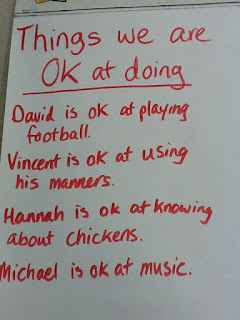 Things we are
OK at doing
David is ok at playing
football.
Vincent is ok at using
his manners.
Hannah is ok at knowing
about chickens.
Michael is ok at music.